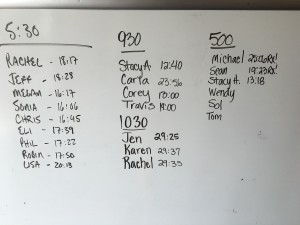 5:30
RACHEL - 18:17
JEFF - 18:28
MEGAN - 16:17
SONIA - 16:06
CHRIS - 16:45
ELI - 17:39
PHIL - 17:22
ROBIN - 17:50
LISA - 20:13
930
Stacy A. 12:40
Carla 23:56
Corey 10:00
Travis 19:00
1030
Jen 29:25
Karen 29:37
Rachel 29:33
500
Michael
Sean
Stacy H. 13:18
Wendy
Sol
Tom